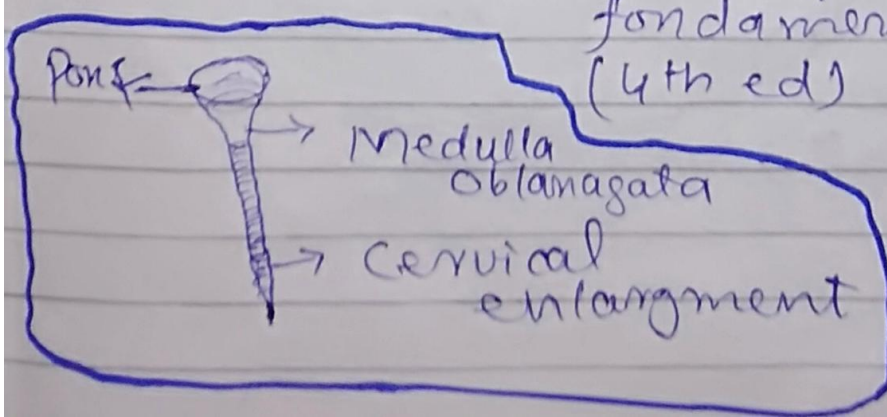 fondamen
(4th ed)
Pons
Medulla
Oblanagata
Cervical
enlargment